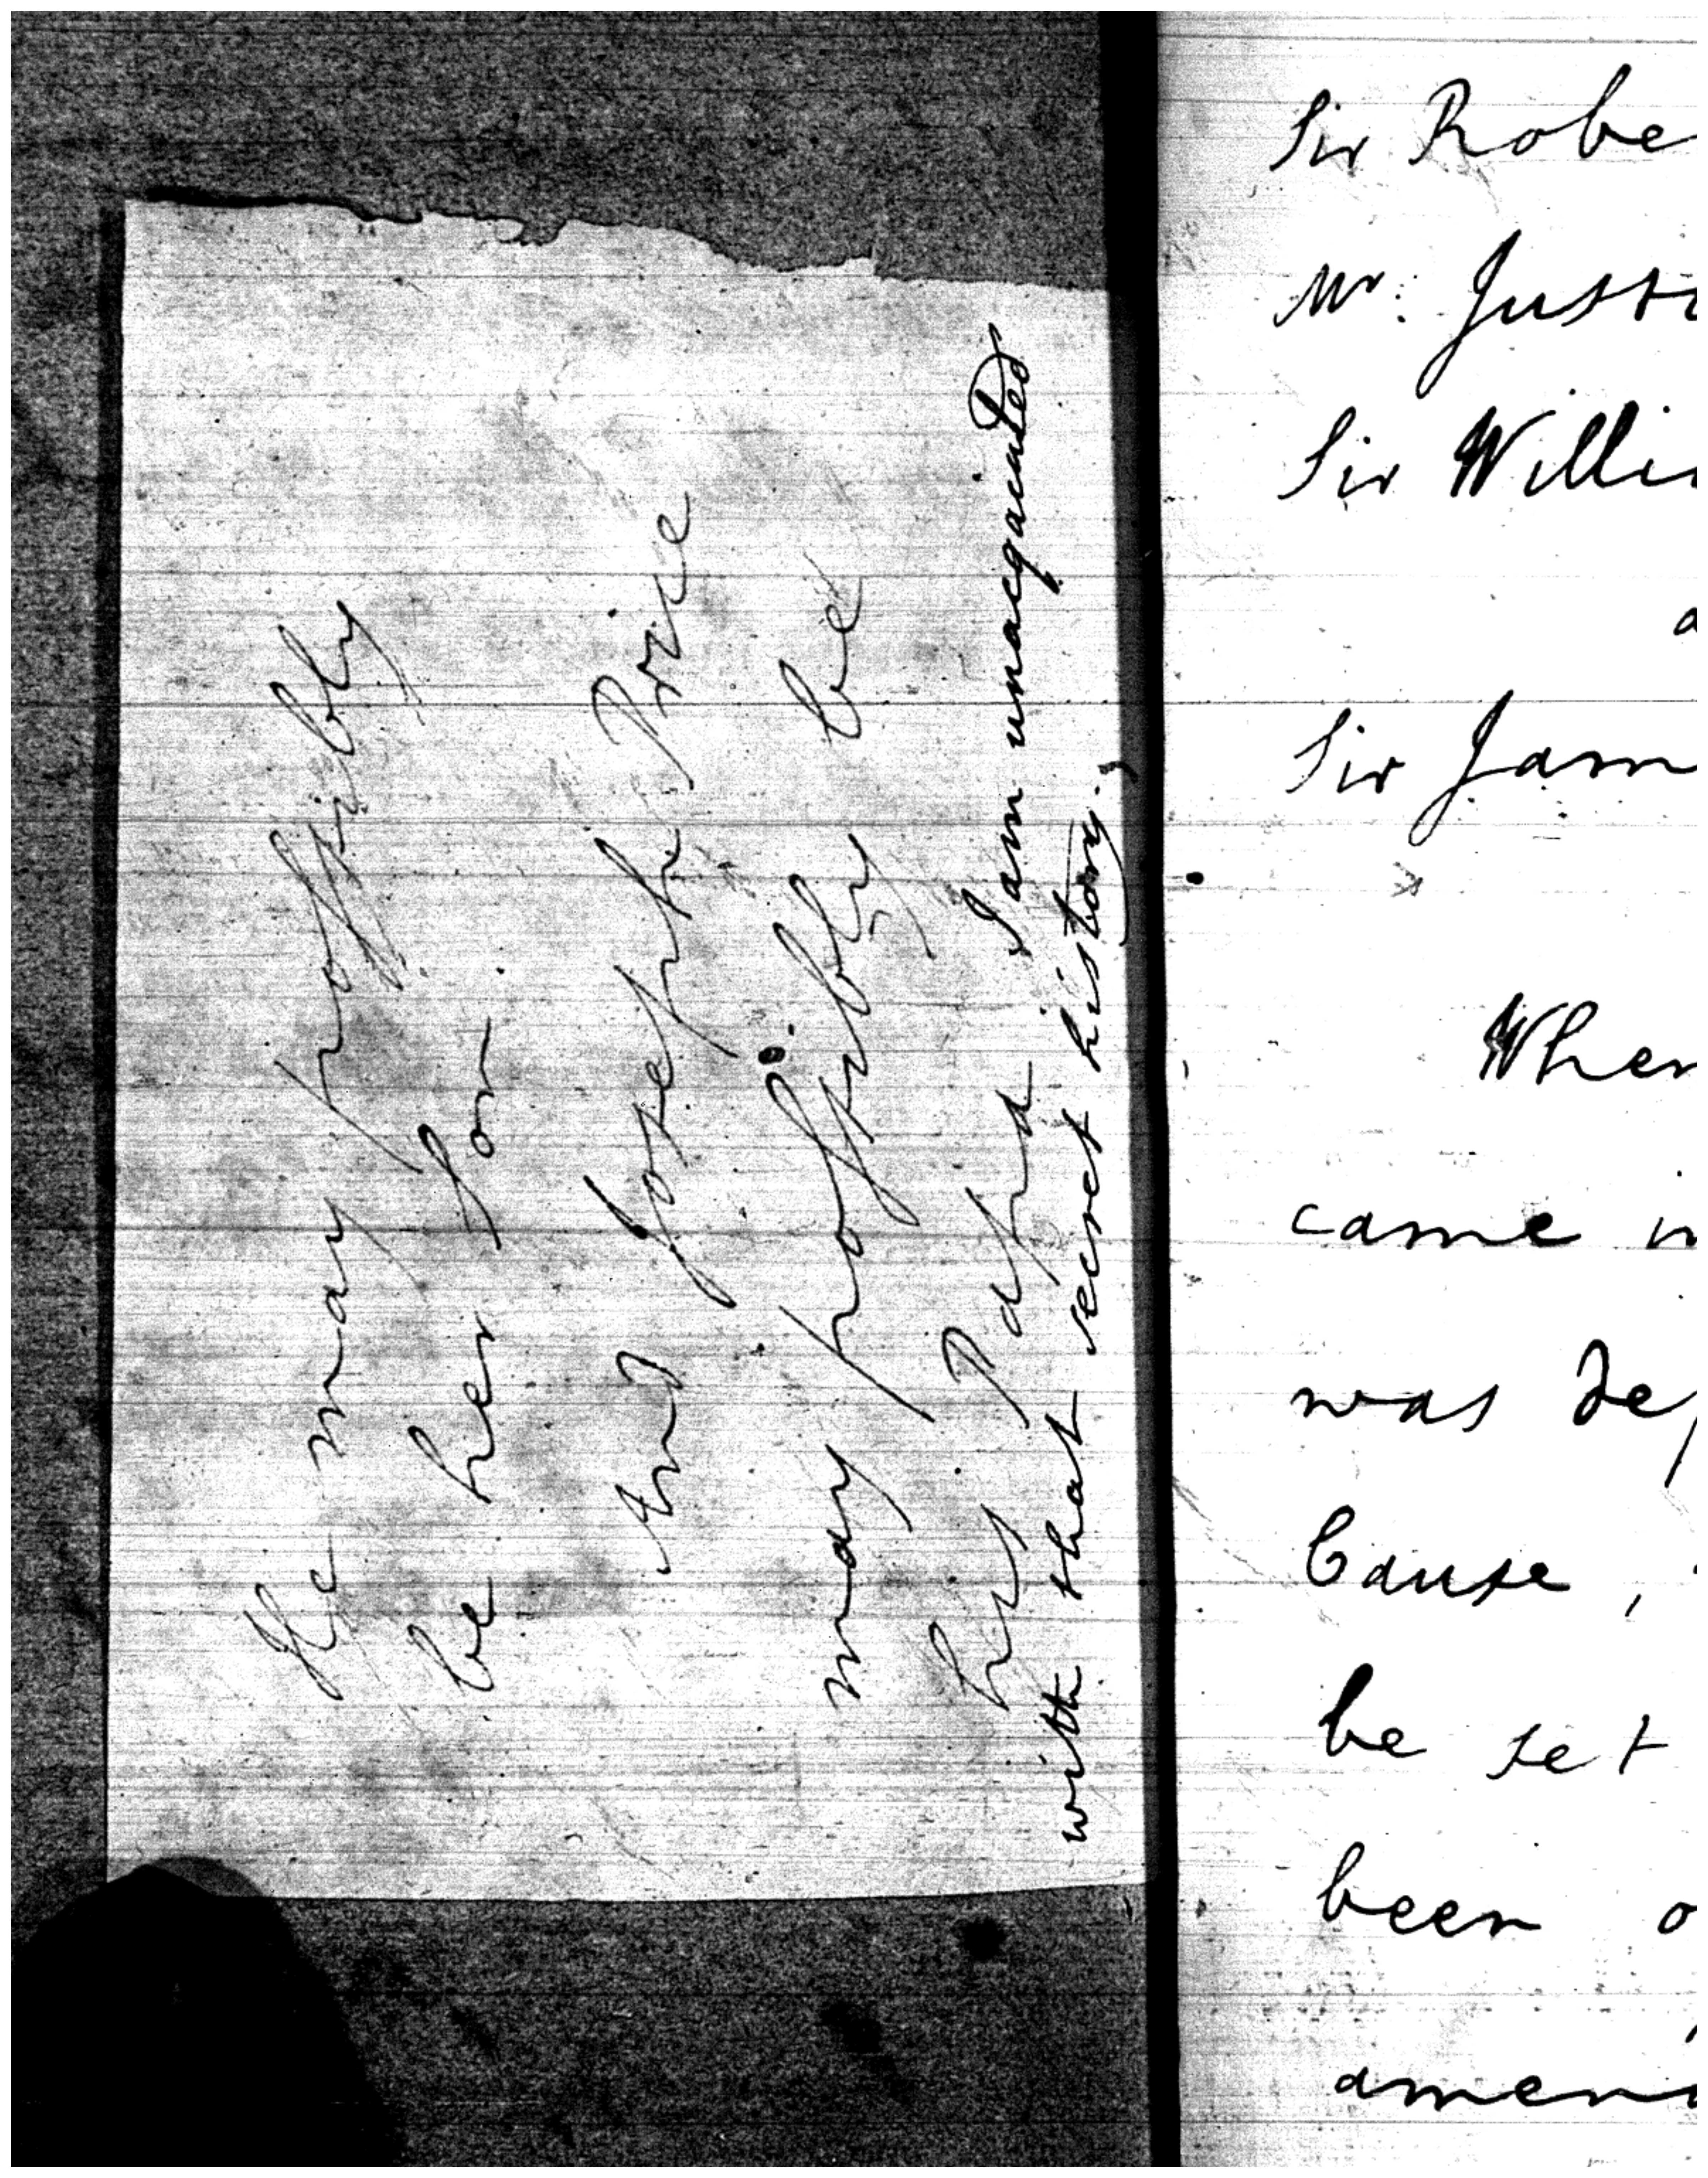 He may possibly
be her son.
this Joseph Price
may possibly be
his Patrid I am unacquainted
with that secret history.
Sir Robe
Mr: Justi
Sir Willi
a
Sir Jam
When
came in
was dep
Cause,
be set
been o
amen